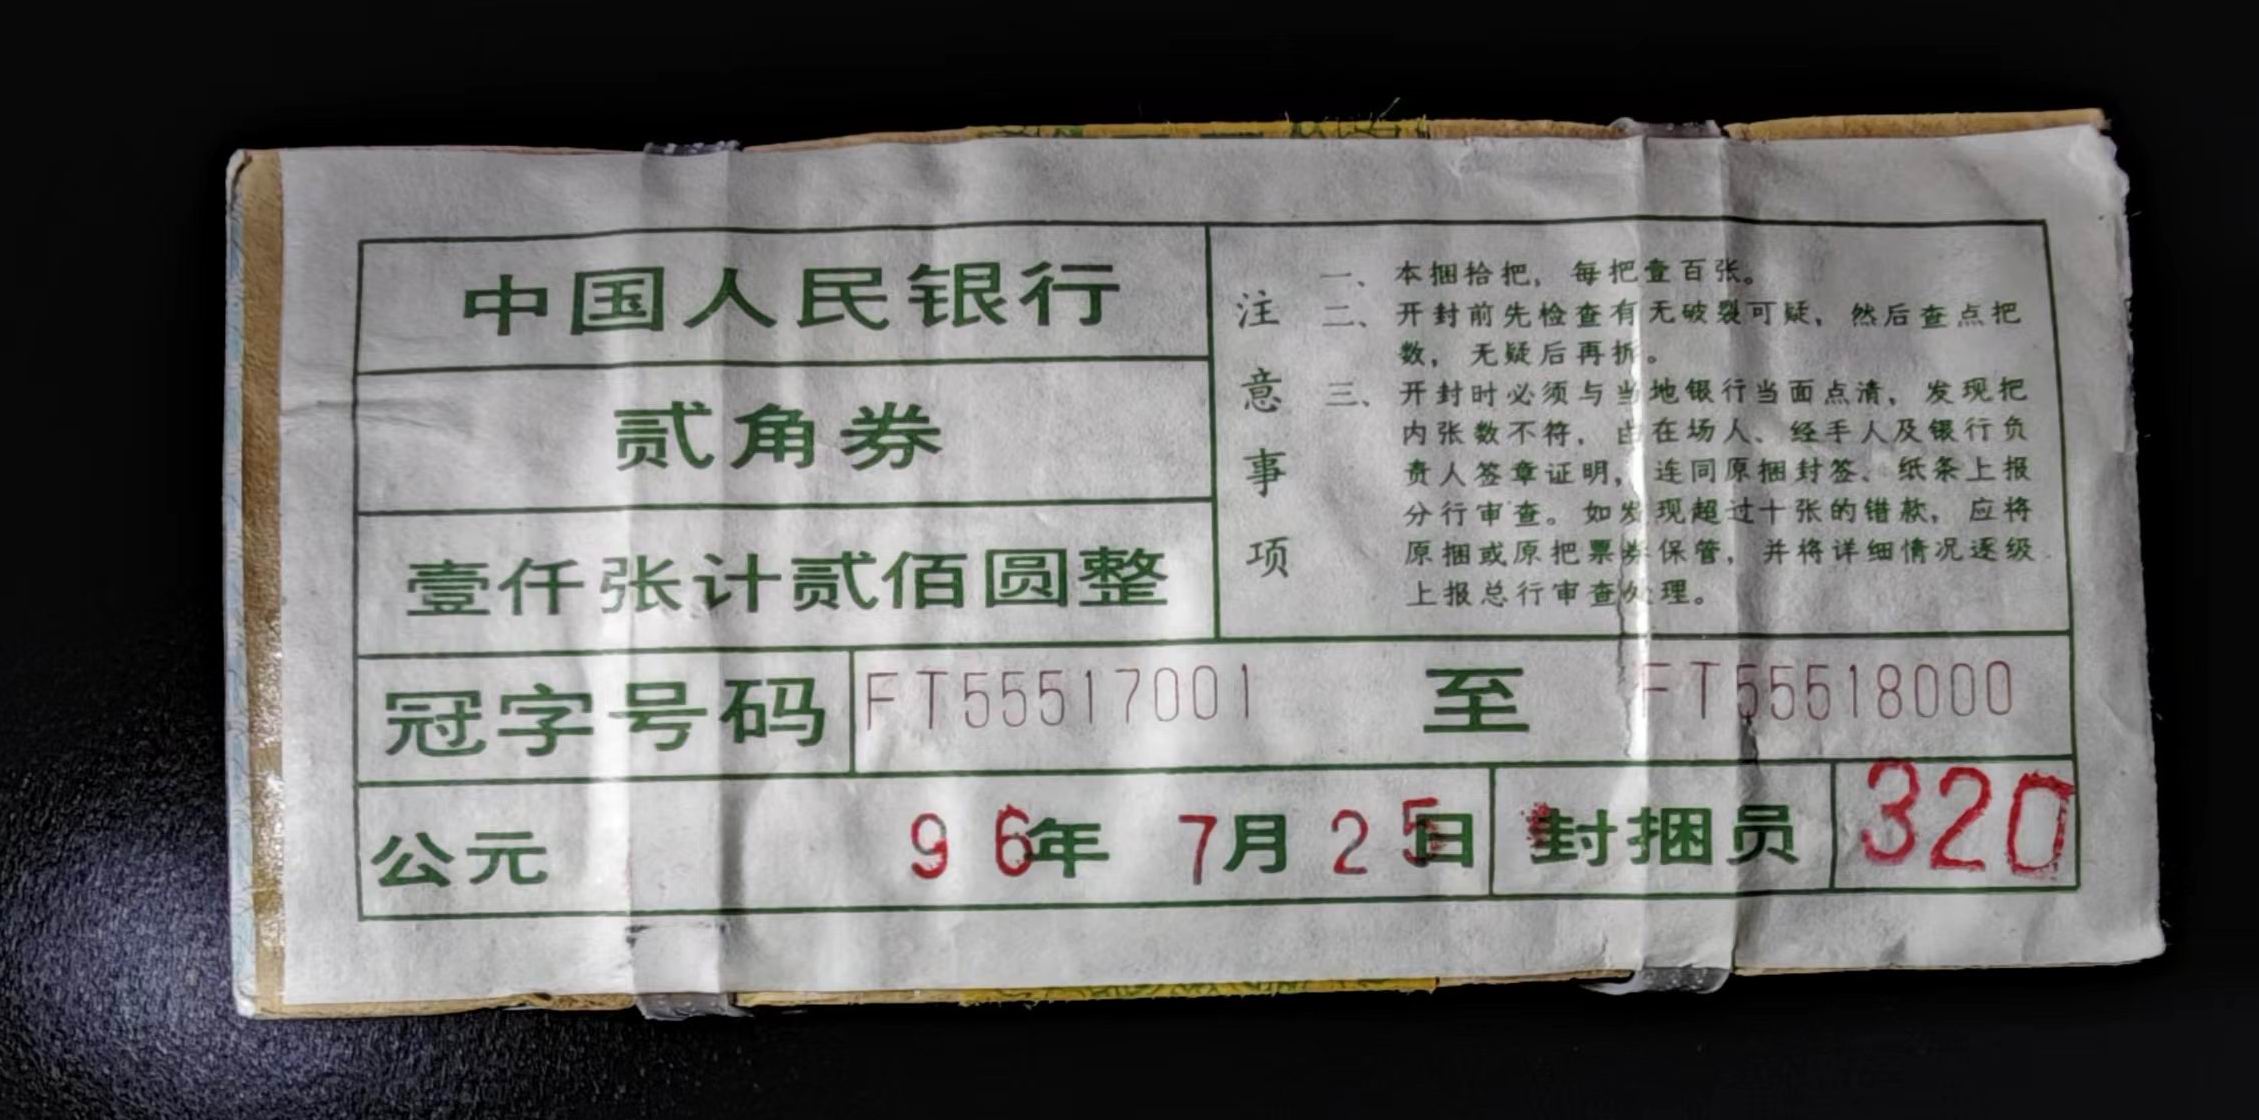 中国人民银行
贰角券
壹仟张计贰佰圆整
注意事项
一、本捆拾把，每把壹百张。
二、开封前先检查有无破裂可疑，然后查点把
数，无疑后再拆。
三、开封时必须与当地银行当面点清，发现把
内张数不符，由在场人、经手人及银行负
责人签章证明，连同原捆封签、纸条上报
分行审查。如发现超过十张的错款，应将
原捆或原把票券保管，并将详细情况逐级
上报总行审查处理。
冠字号码 FT55517001 至 FT55518000
公元 96年 7月 25日 封捆员 320